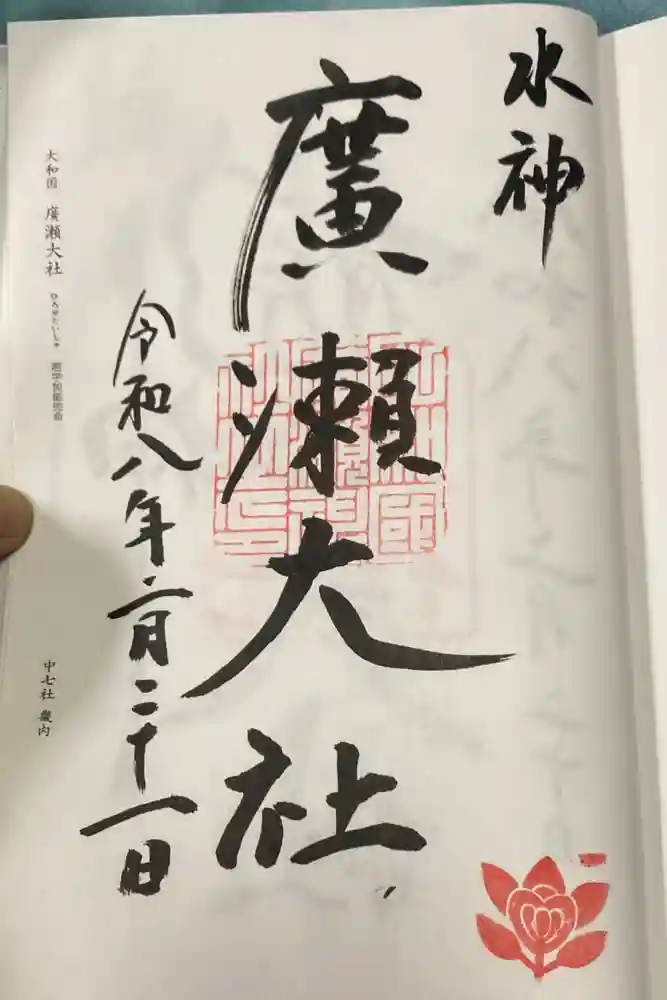 水神
廣瀬大社
令和八年二月二十一日
大和国 廣瀬大社 ひろせたいしゃ
中七社 畿内